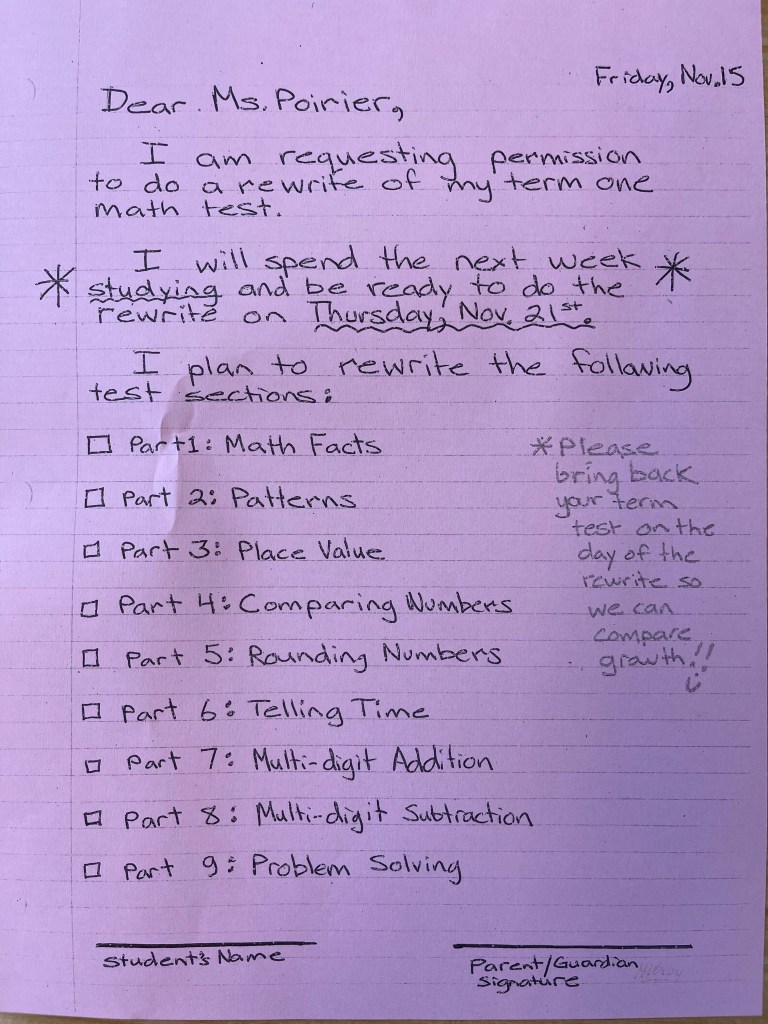 Friday, Nov.15
Dear Ms. Poirier,
I am requesting permission
to do a rewrite of my term one
math test.
I will spend the next week
* studying and be ready to do the *
rewrite on Thursday, Nov. 21st.
I plan to rewrite the following
test sections:
Part1: Math Facts
Part 2: Patterns
Part 3: Place Value
Part 4: Comparing Numbers
Part 5: Rounding Numbers
Part 6: Telling Time
Part 7: Multi-digit Addition
Part 8: Multi-digit Subtraction
Part 9: Problem Solving
* Please
bring back
your term
test on the
day of the
rewrite so
we can
compare
growth!!
Student's Name
Parent/Guardian
Signature